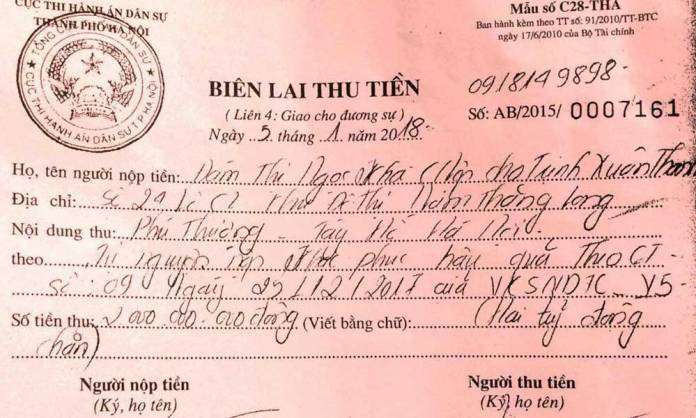 CỤC THI HÀNH ÁN DÂN SỰ
THÀNH PHỐ HÀ NỘI
Mẫu số C28-THA
Ban hành kèm theo TT số: 91/2010/TT-BTC
ngày 17/6/2010 của Bộ Tài chính
TỔNG CỤC THI HÀNH ÁN DÂN SỰ
CỤC THI HÀNH ÁN DÂN SỰ T.P HÀ NỘI
BIÊN LAI THU TIỀN
0918149898-
(Liên 4: Giao cho đương sự)
Số: AB/2015/ 0007161
Ngày 5 tháng 1 năm 2018
Họ, tên người nộp tiền: Đàm Thị Ngọc Kha (Nộp cho Trịnh Xuân Thanh
Địa chỉ: Số 24 Lô C1 Khu Đô Thị Nam Thăng Long
Nội dung thu: Phú Thượng - Tây Hồ Hà Nội
theo Tự nguyện nộp khắc phục hậu quả Theo CT
Số: 09 Ngày 25/12/2017 của VKSNDTC V5
Số tiền thu: 2.000.000.000 đồng (Viết bằng chữ): (Hai tỷ đồng
chẵn)
Người nộp tiền
(Ký, họ tên)
Người thu tiền
(Ký, họ tên)